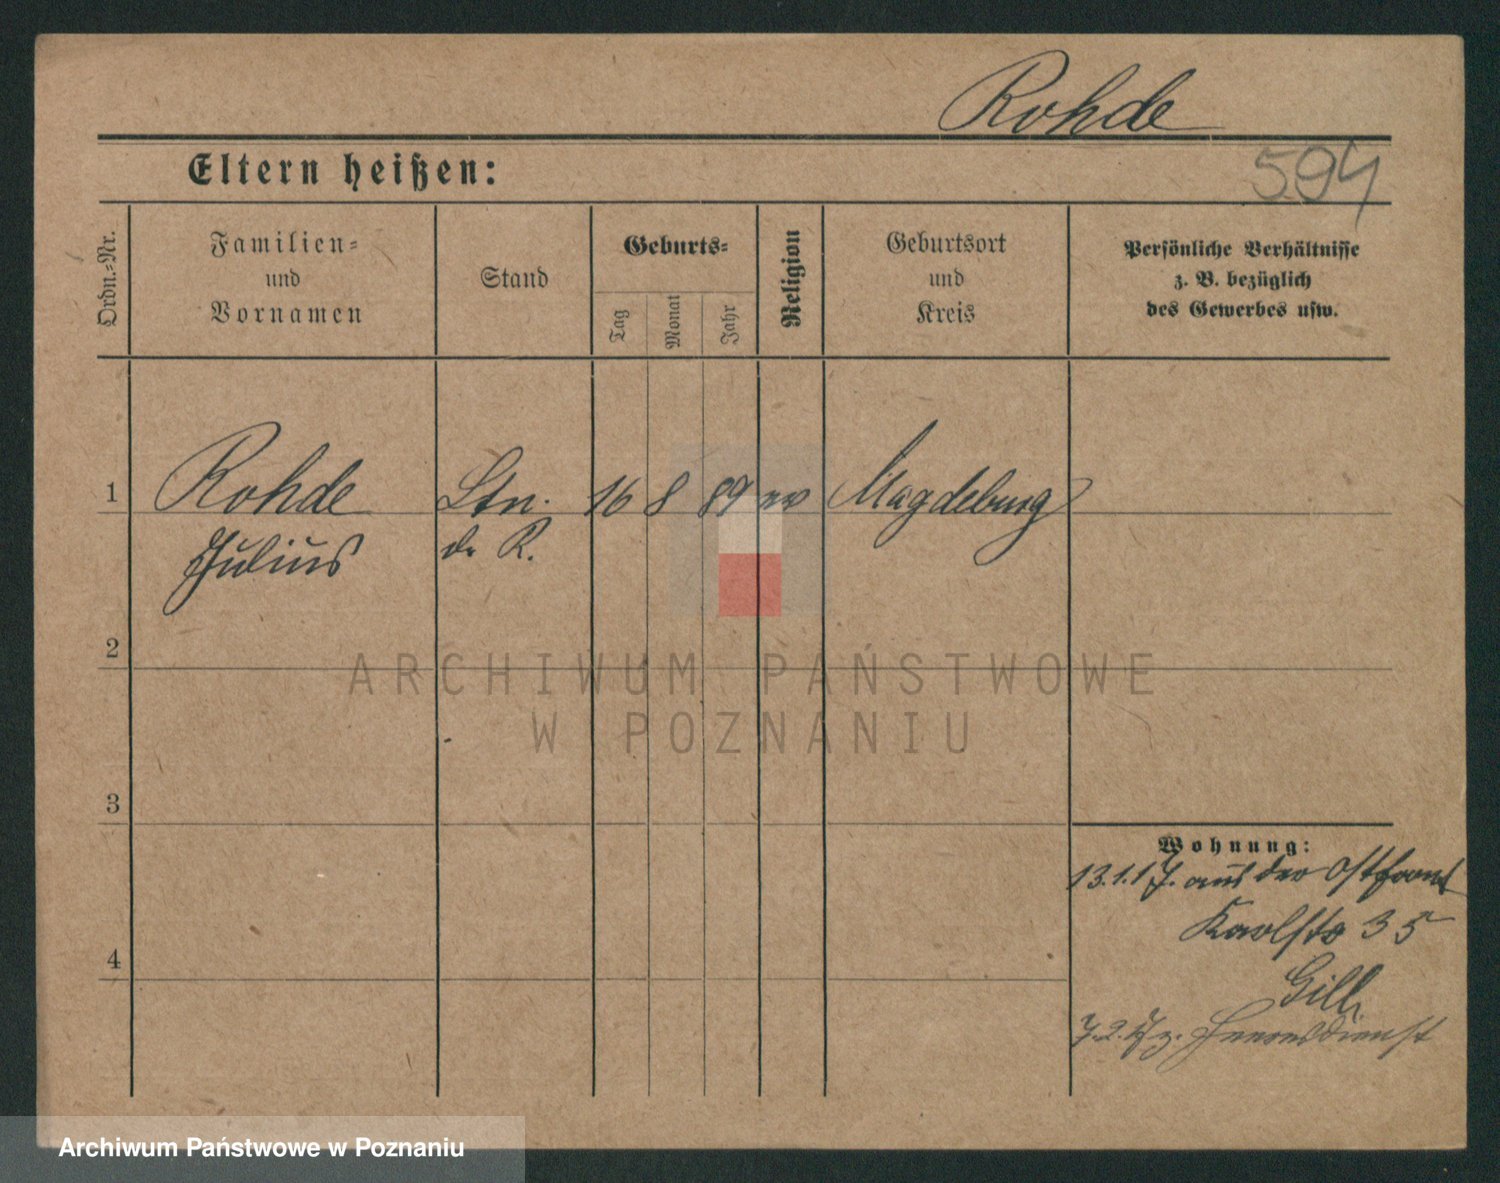 Rohde
594
Eltern heißen:
Ordn.-Nr.
Familien-
und
Vornamen
Stand
Geburts-
Tag
Monat
Jahr
Religion
Geburtsort
und
Kreis
Persönliche Verhältnisse
z. B. bezüglich
des Gewerbes usw.
1 Rohde Ltn. 16 8 89 ev Magdeburg
Julius d. R.
2
ARCHIWUM PAŃSTWOWE
W POZNANIU
3
Wohnung:
13.1.17. aus der Ostfront
Karlstr 35
4
Gill
7.2.17 z. Heeresdienst
Archiwum Państwowe w Poznaniu